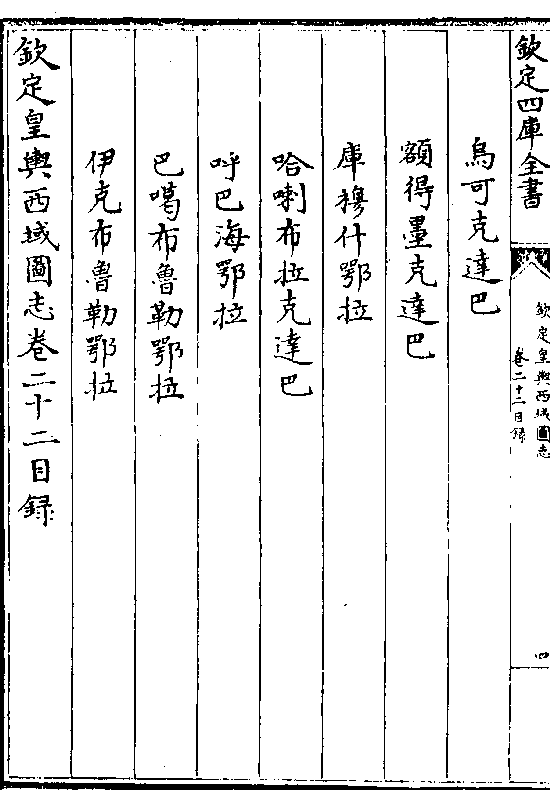 欽定四庫全書
欽定皇輿西域圖志
卷二十二目録
四
烏可克達巴
額得墨克達巴
庫穆什鄂拉
哈喇布拉克達巴
呼巴海鄂拉
巴噶布魯勒鄂拉
伊克布魯勒鄂拉
欽定皇輿西域圖志卷二十二目録